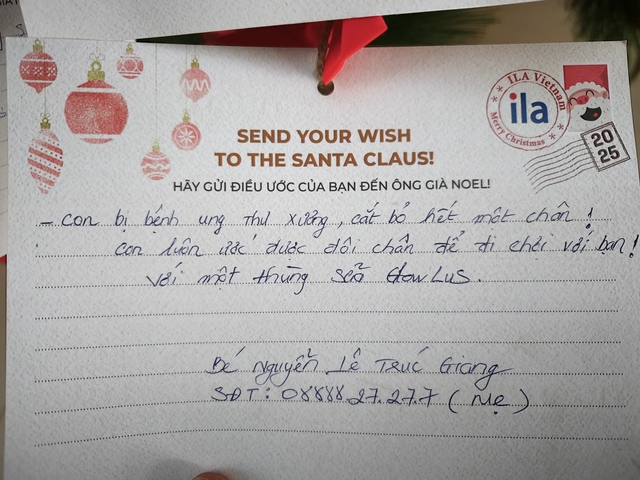 ILA Vietnam
ila
Merry Christmas
20
25
SEND YOUR WISH
TO THE SANTA CLAUS!
HÃY GỬI ĐIỀU ƯỚC CỦA BẠN ĐẾN ÔNG GIÀ NOEL!
- Con bị bệnh ung thư xương, cắt bỏ hết một chân!
con luôn ước được đôi chân để đi chơi với bạn!
Với một thùng sữa GlowLus.
Bé Nguyễn Lê Trúc Giang
SĐT: 08888.27.27.7 (Mẹ)